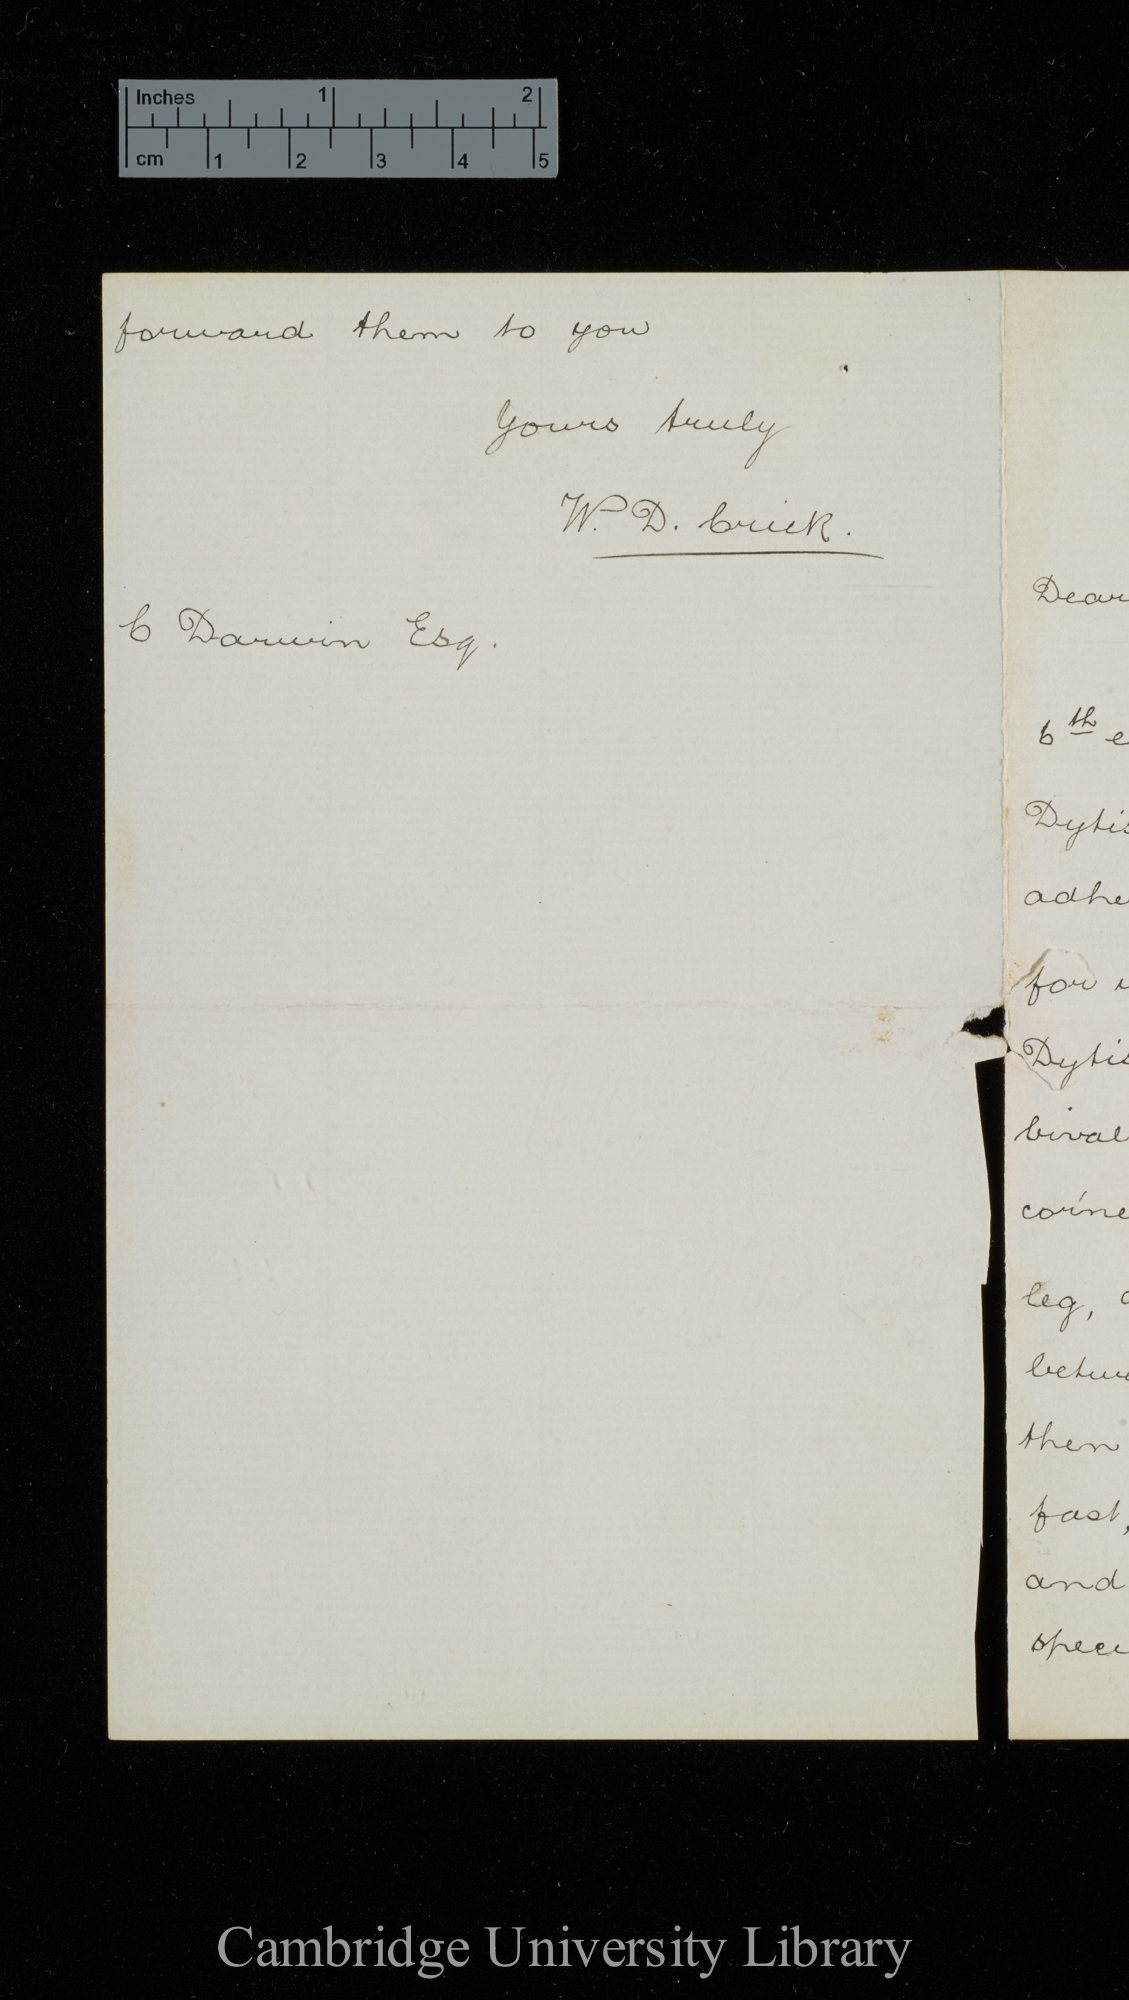 Inches 1 2
cm 1 2 3 4 5
forward them to you
Yours truly
W. D. Crick.
C Darwin Esq.
Dear
6th e
Dytis
adhe
for
Dytis
bival
corne
leg,
betwe
then
fast,
and
speci
Cambridge University Library